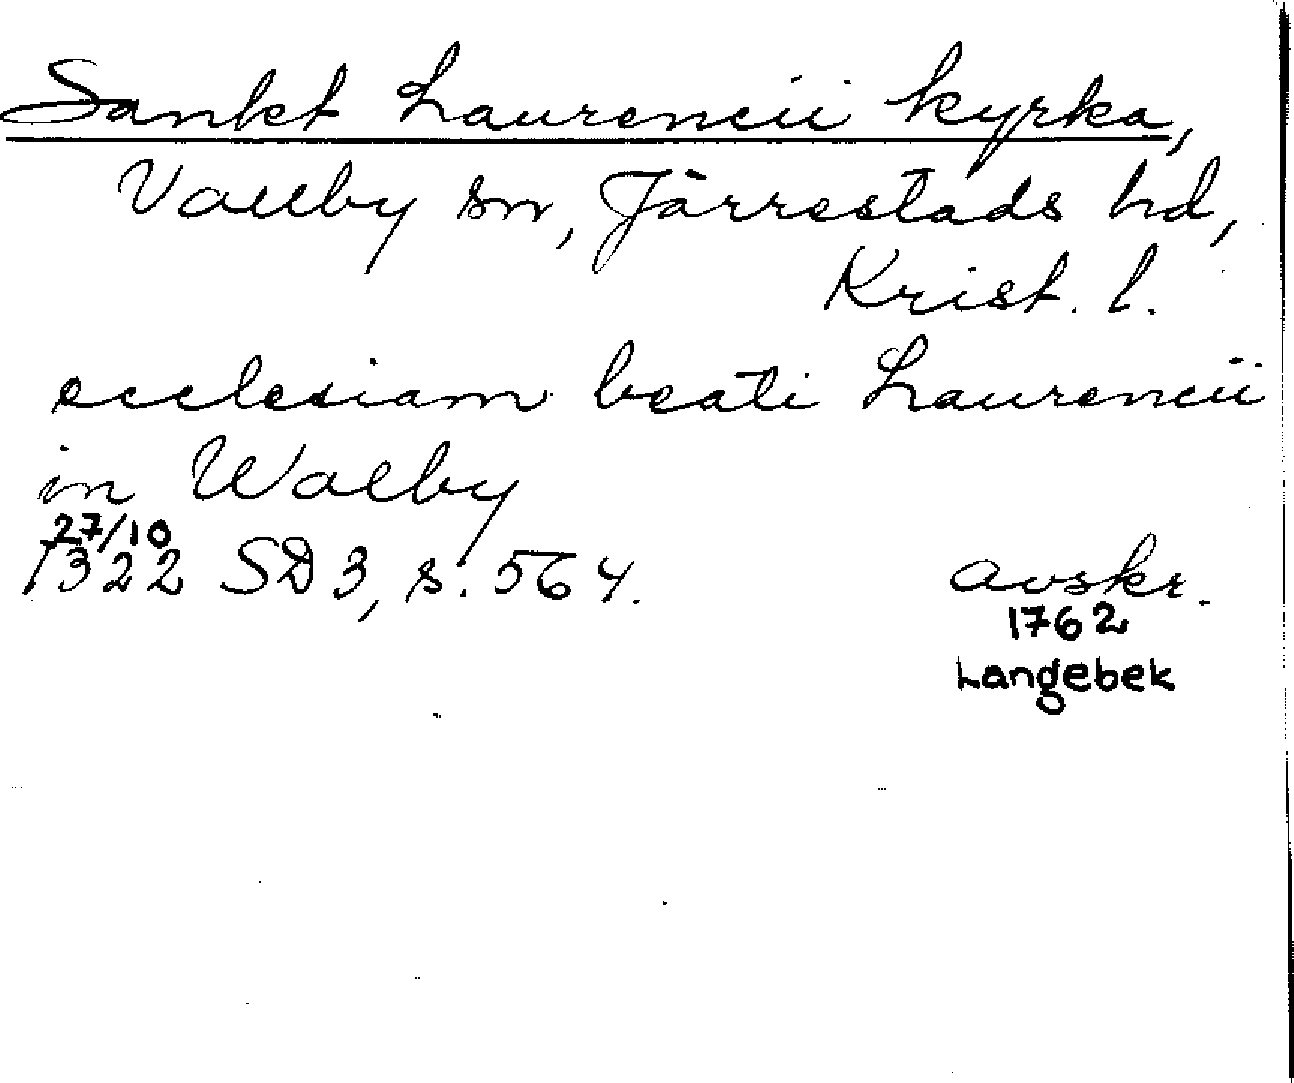 Sankt Laurencii kyrka,
Vallby sn, Järrestads hd,
Krist. l.
ecclesiam beati Laurencii
in Walby
27/10
1322 SD 3, s. 564. avskr.
1762
Langebek